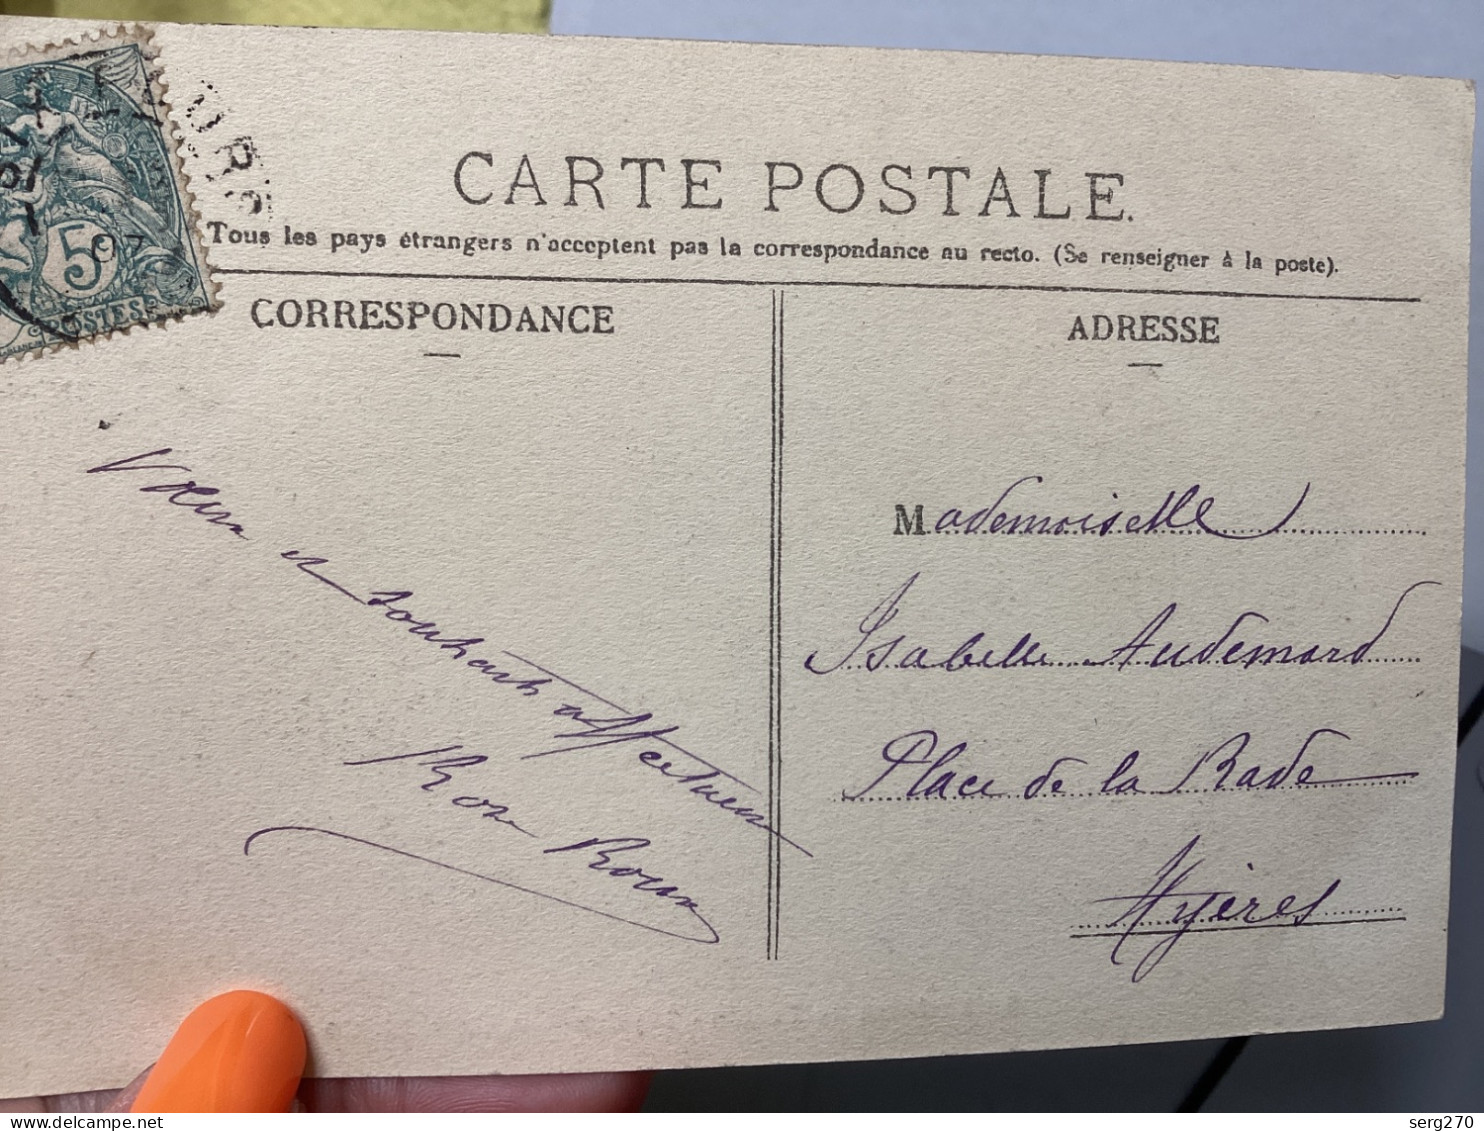 CARTE POSTALE.
Tous les pays étrangers n'acceptent pas la correspondance au recto. (Se renseigner à la poste).
CORRESPONDANCE
ADRESSE
5
07
POSTES
Vœux et souhaits affectueux
Rose Roux
Mademoiselle
Isabelle Audemard
Place de la Rade
Hyères
serg270